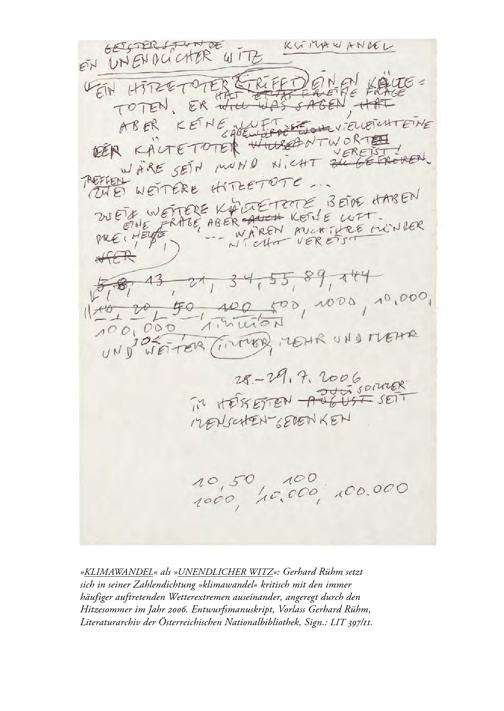 GEISTERSTUNDE KLIMAWANDEL
EIN UNENDLICHER WITZ
EIN HITZETOTER TRIFFT EINEN KÄLTE=
HAT ETWAS FRAGE
TOTEN. ER WILL WAS SAGEN, HAT
ABER KEINE LUFT.
VIELLEICHT EINE
DER KÄLTETOTER ANTWORTEN
VEREIST!
WÄRE SEIN MUND NICHT ZUGEFROREN.
TREFFEN
ZWEI WEITERE HITZETOTE ...
ZWEI WEITERE KÄLTETOTE BEIDE HABEN
EINE FRAGE, ABER AUCH KEINE LUFT.
DREI, ... WÄREN AUCH IHRE MÜNDER
NICHT VEREIST
VIER
5, 8, 13, 21, 34, 55, 89, 144
10 20, 50, 100 500, 1000, 10.000,
100,000, 1 MILLION
UND WEITER IMMER, MEHR UND MEHR
28.–29.7.2006
JULI SOMMER
IM HEISSESTEN AUGUST SEIT
MENSCHEN-GEDENKEN
10, 50, 100
1000, 10.000, 100.000
»KLIMAWANDEL« als »UNENDLICHER WITZ«: Gerhard Rühm setzt
sich in seiner Zahlendichtung »klimawandel« kritisch mit den immer
häufiger auftretenden Wetterextremen auseinander, angeregt durch den
Hitzesommer im Jahr 2006. Entwurfsmanuskript, Vorlass Gerhard Rühm,
Literaturarchiv der Österreichischen Nationalbibliothek, Sign.: LIT 397/11.